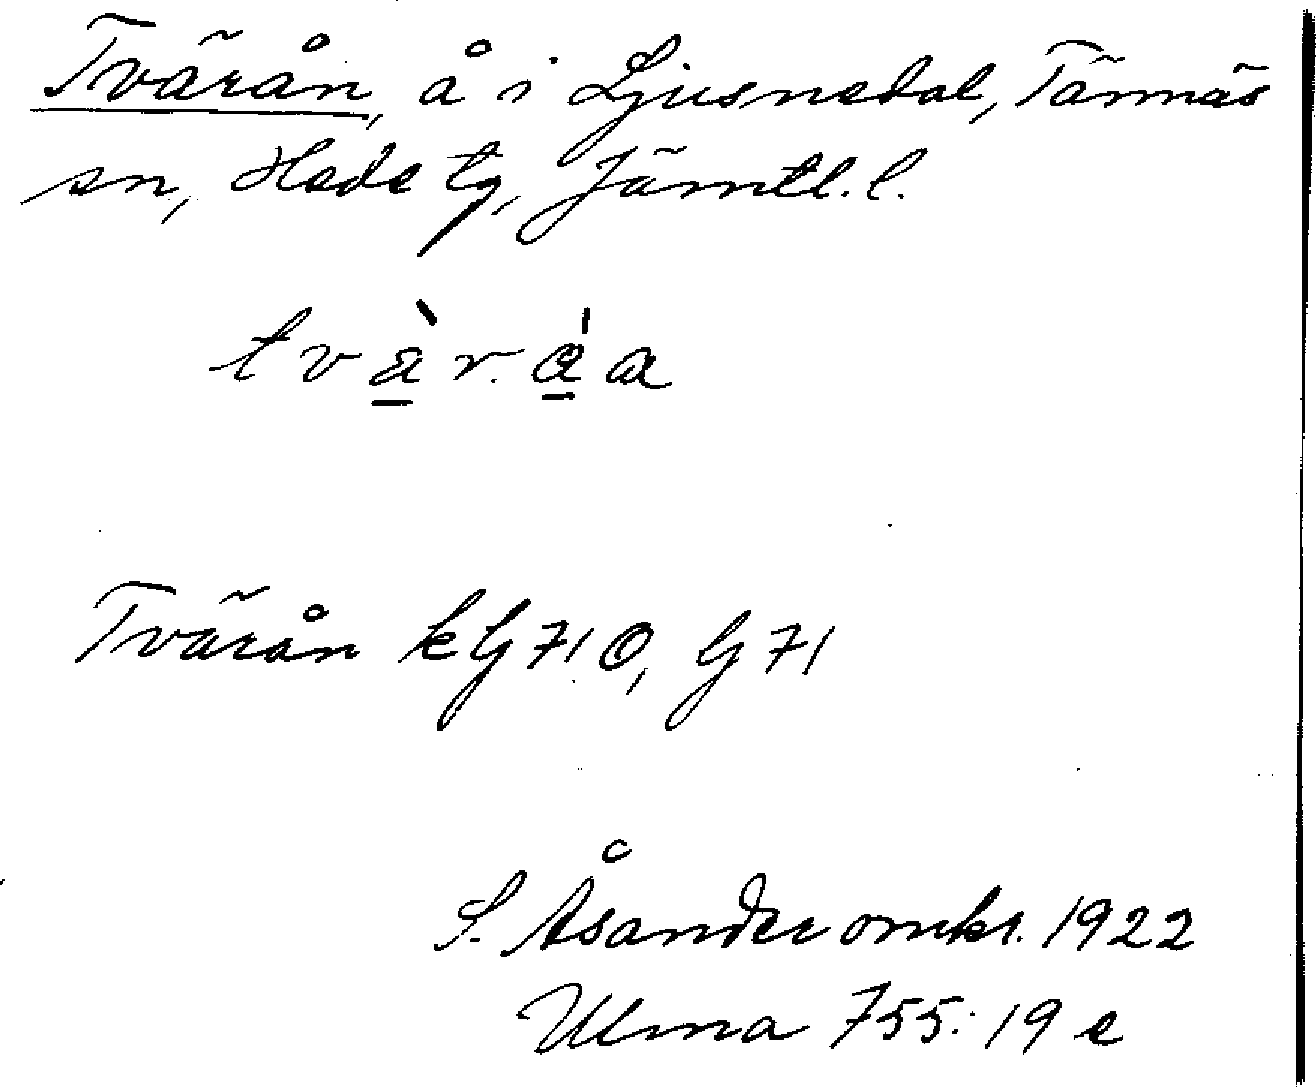 Tvärån, å i Ljusnedal, Tännäs
sn, Hede tg, Jämtl. l.
Tvärån kG 71 O, G 71
S. Åsander omkr. 1922
Ulma 755:19 e